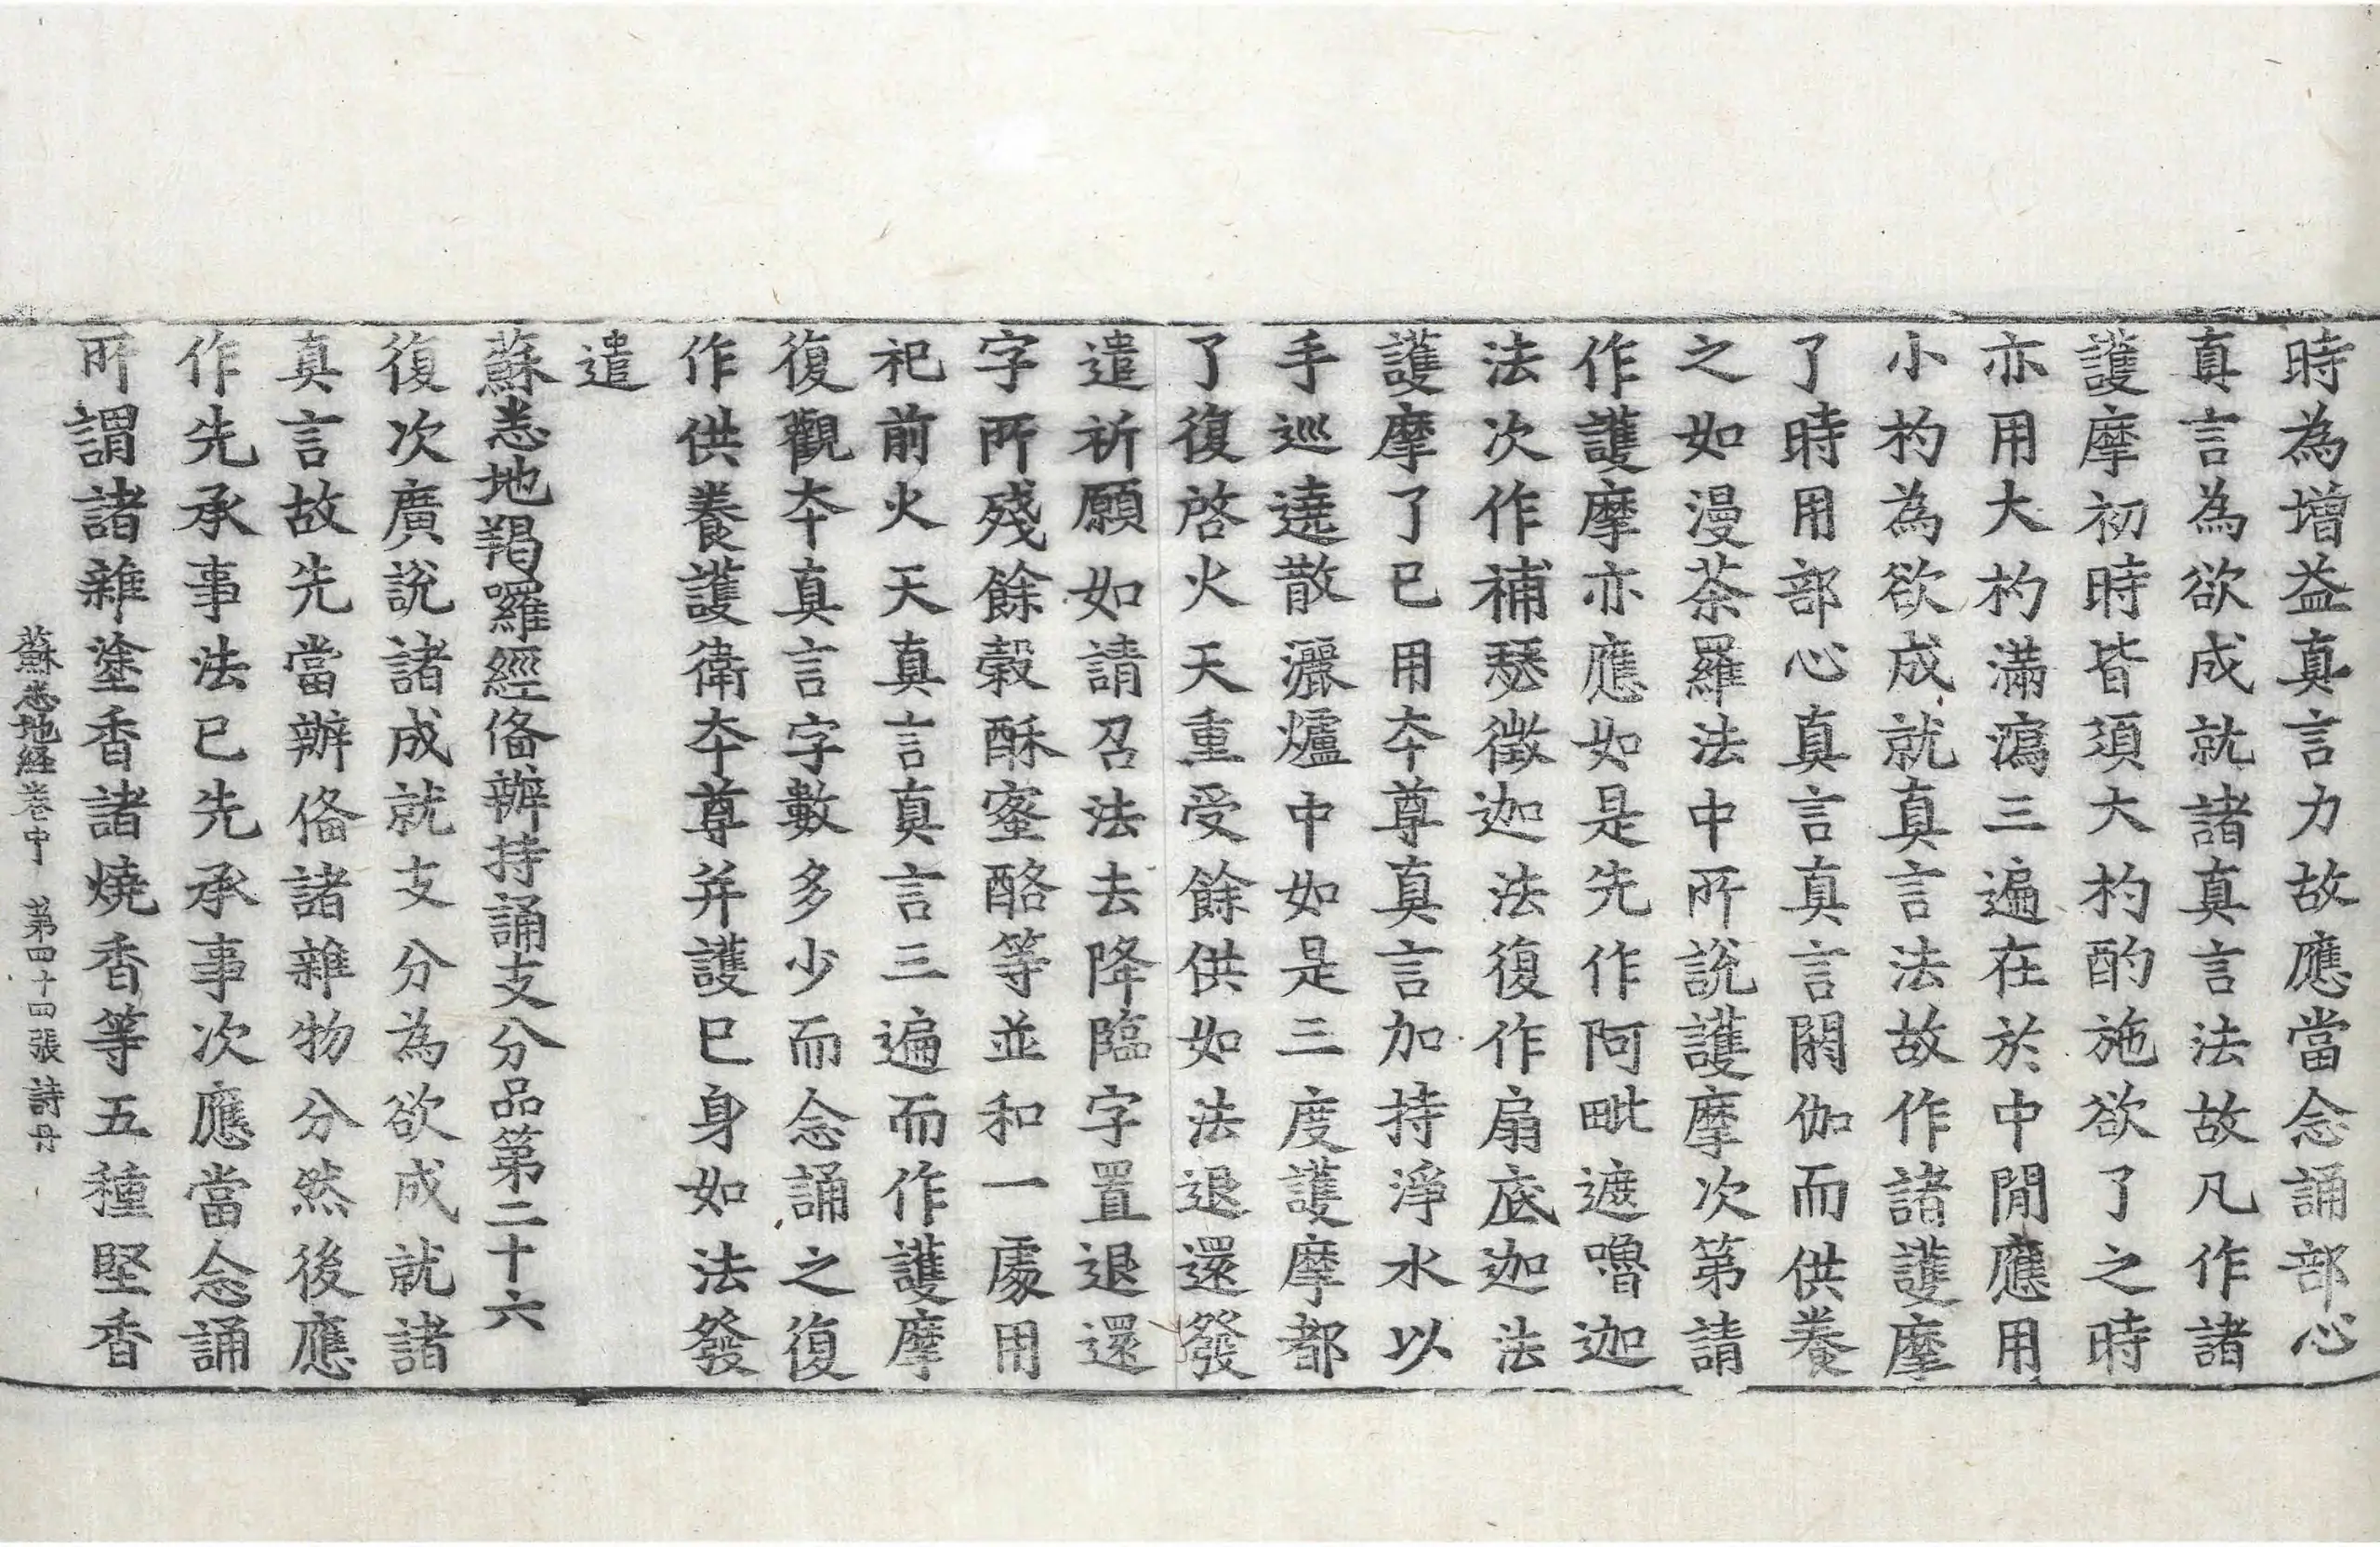 時為增益真言力故應當念誦部心
真言為欲成就諸真言法故凡作諸
護摩初時皆須大杓酌施欲了之時
亦用大杓滿瀉三遍在於中閒應用
小杓為欲成就真言法故作諸護摩
了時用部心真言真言閼伽而供養
之如漫荼羅法中所說護摩次第請
作護摩亦應如是先作阿毗遮嚕迦
法次作補瑟徵迦法復作扇底迦法
護摩了已用本尊真言加持淨水以
手巡遶散灑爐中如是三度護摩都
了復啓火天重受餘供如法退還發
遣祈願如請召法去降臨字置退還
字所殘餘穀酥蜜酪等並和一處用
祀前火天真言真言三遍而作護摩
復觀本真言字數多少而念誦之復
作供養護衛本尊并護已身如法發
遣
蘇悉地羯囉經俻辦持誦支分品第二十六
復次廣說諸成就支分為欲成就諸
真言故先當辦俻諸雜物分然後應
作先承事法已先承事次應當念誦
所謂諸雜塗香諸燒香等五種堅香
蘇悉地経卷中 第四十四張 詩丹